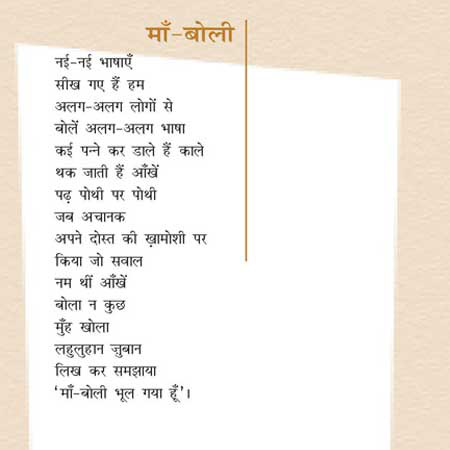 माँ-बोली
नई-नई भाषाएँ
सीख गए हैं हम
अलग-अलग लोगों से
बोलें अलग-अलग भाषा
कई पन्ने कर डाले हैं काले
थक जाती हैं आँखें
पढ़ पोथी पर पोथी
जब अचानक
अपने दोस्त की ख़ामोशी पर
किया जो सवाल
नम थीं आँखें
बोला न कुछ
मुँह खोला
लहुलुहान ज़ुबान
लिख कर समझाया
‘माँ-बोली भूल गया हूँ’।